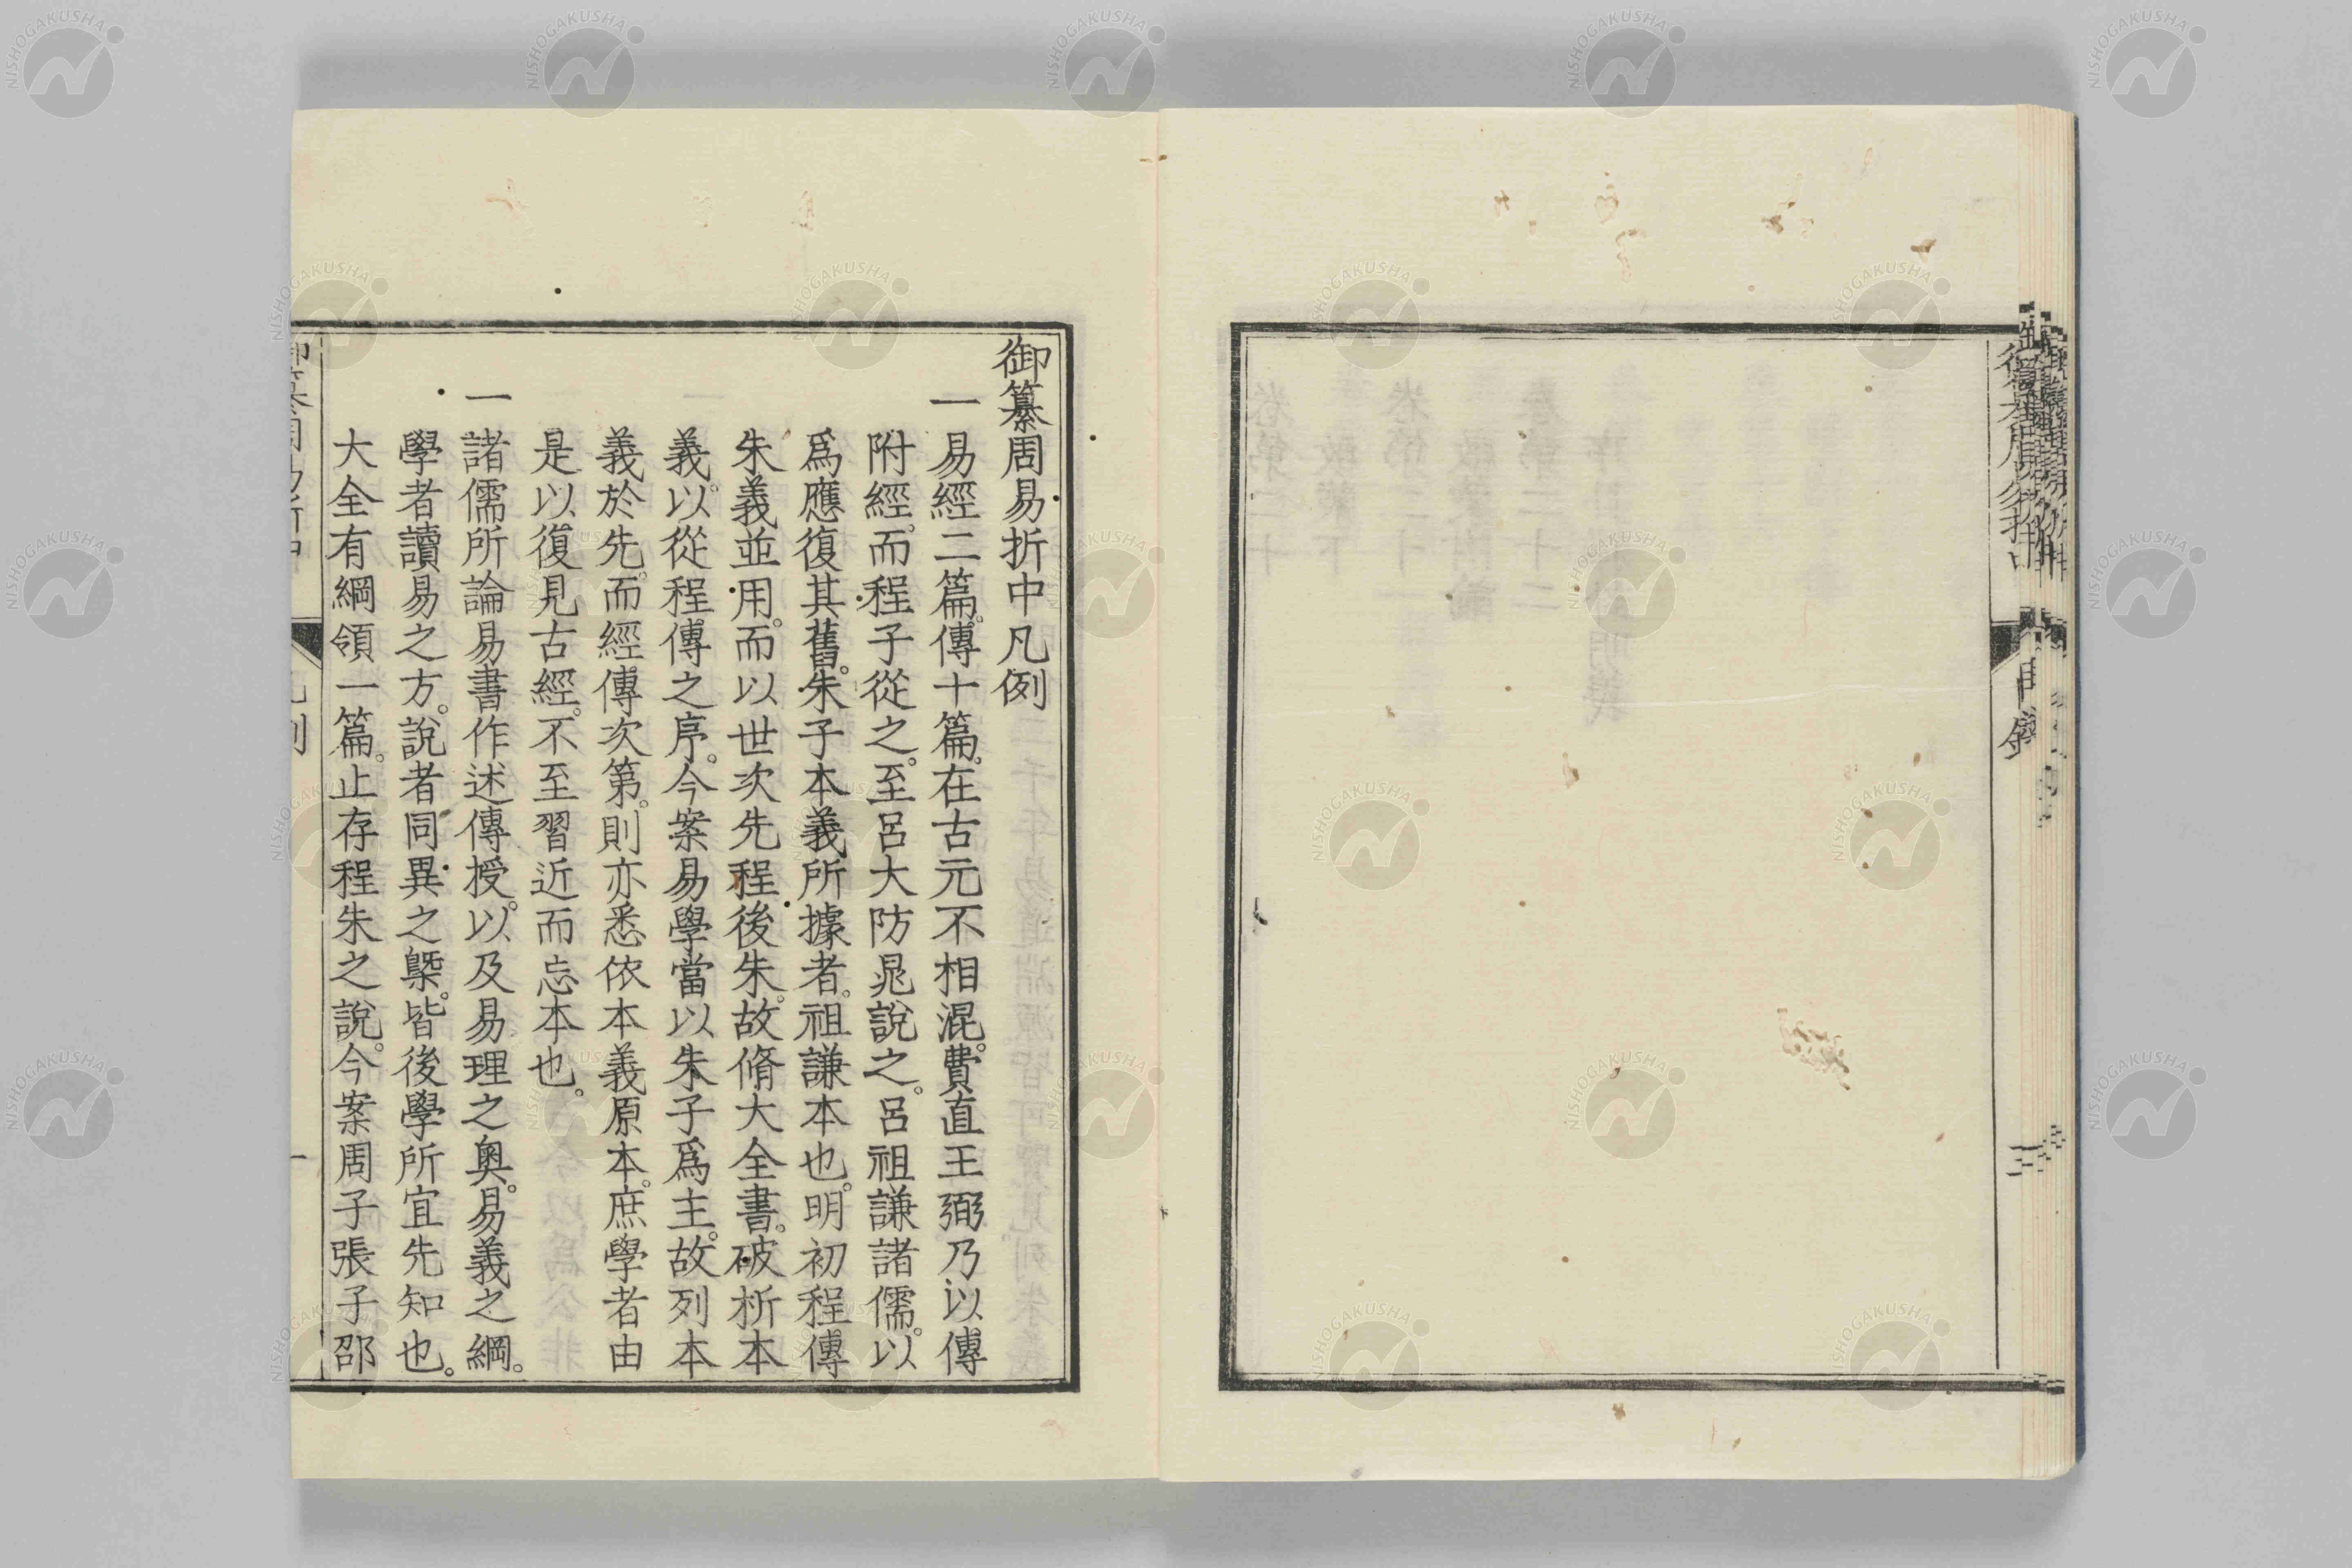 御纂周易折中凡例
一易經二篇。傳十篇。在古元不相混。費直王弼乃以傳
附經。而程子從之。至呂大防晁說之。呂祖謙諸儒。以
爲應復其舊。朱子本義所據者。祖謙本也。明初程傳
朱義並用。而以世次先程後朱。故脩大全書。破析本
義。以從程傳之序。今案易學當以朱子爲主。故列本
義於先。而經傳次第。則亦悉依本義原本。庶學者由
是以復見古經。不至習近而忘本也。
一諸儒所論易書作述傳授。以及易理之奧。易義之綱。
學者讀易之方。說者同異之槩。皆後學所宜先知也。
大全有綱領一篇。止存程朱之說。今案周子張子邵